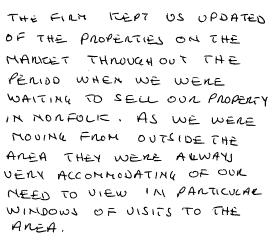 THE FIRM KEPT US UPDATED
OF THE PROPERTIES ON THE
MARKET THROUGHOUT THE
PERIOD WHEN WE WERE
WAITING TO SELL OUR PROPERTY
IN NORFOLK. AS WE WERE
MOVING FROM OUTSIDE THE
AREA THEY WERE ALWAYS
VERY ACCOMMODATING OF OUR
NEED TO VIEW IN PARTICULAR
WINDOWS OF VISITS TO THE
AREA.